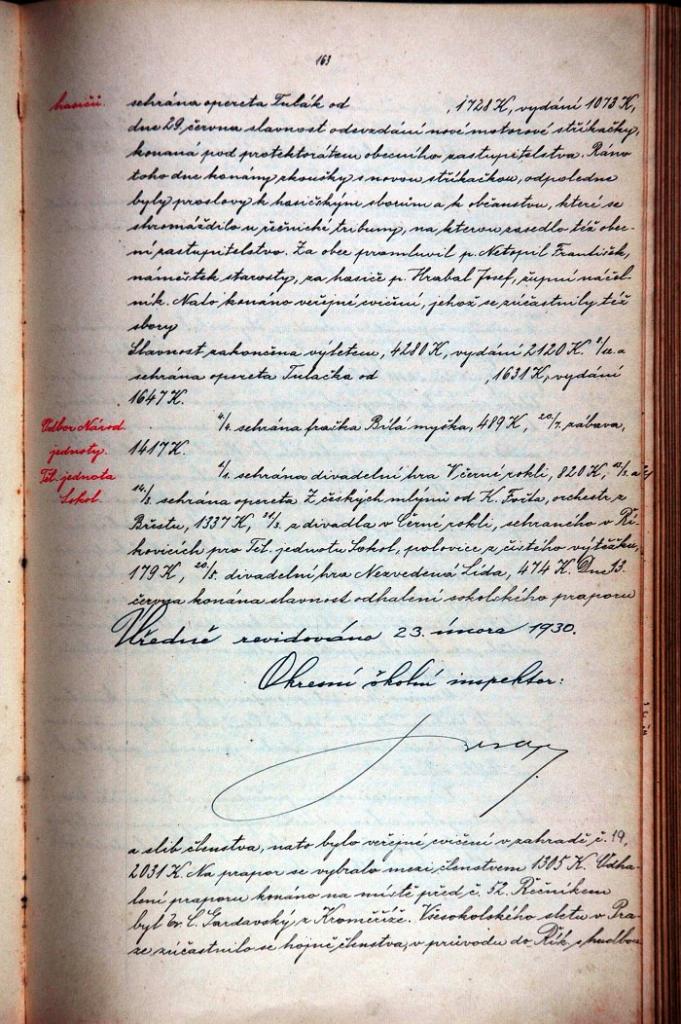 163
hasiči.
sehrána opereta Tulák od , 1728 K, vydání 1073 K,
dne 29. června slavnost odevzdání nové motorové stříkačky,
konaná pod protektorátem obecního zastupitelstva. Ráno
toho dne konány zkoušky s novou stříkačkou, odpoledne
byly proslovy k hasičským sborům a k občanstvu, které se
shromáždilo u řečnické tribuny, na kterou zasedlo též obec-
ní zastupitelstvo. Za obec promluvil p. Netopil František,
náměstek starosty, za hasiče p. Hrabal Josef, župní náčel-
ník. Nato konáno veřejné cvičení, jehož se zúčastnily též
sbory
Slavnost zakončena výletem, 4280 K, vydání 2120 K. a
sehrána opereta Tulačka od , 1631 K, vydání
1647 K.
Odbor Národ.
jednoty.
Těl. jednota
Sokol.
sehrána fraška Bílá myška, 489 K, zábava,
1417 K.
sehrána divadelní hra V černé rokli, 820 K,
sehrána opereta Z českých mlýnů od K. Fořta, orchestr z
Břestu, 1337 K, z divadla v Černé rokli, sehraného v Ří-
kovicích pro Těl. jednotu Sokol, polovice z čistého výtěžku,
179 K, divadelní hra Nezvedená Lída, 474 K. Dne 13.
června konána slavnost odhalení sokolského praporu
Úředně revidováno 23. února 1930.
Okresní školní inspektor:
a slib členstva, nato bylo veřejné cvičení v zahradě č. 19,
2031 K. Na prapor se vybralo mezi členstvem 1305 K. Odha-
lení praporu konáno na místě před č. 52. Řečníkem
byl br. C. Gardavský z Kroměříže. Všesokolského sletu v Pra-
ze zúčastnilo se hojně členstva, v průvodu do Řík. s hudbou